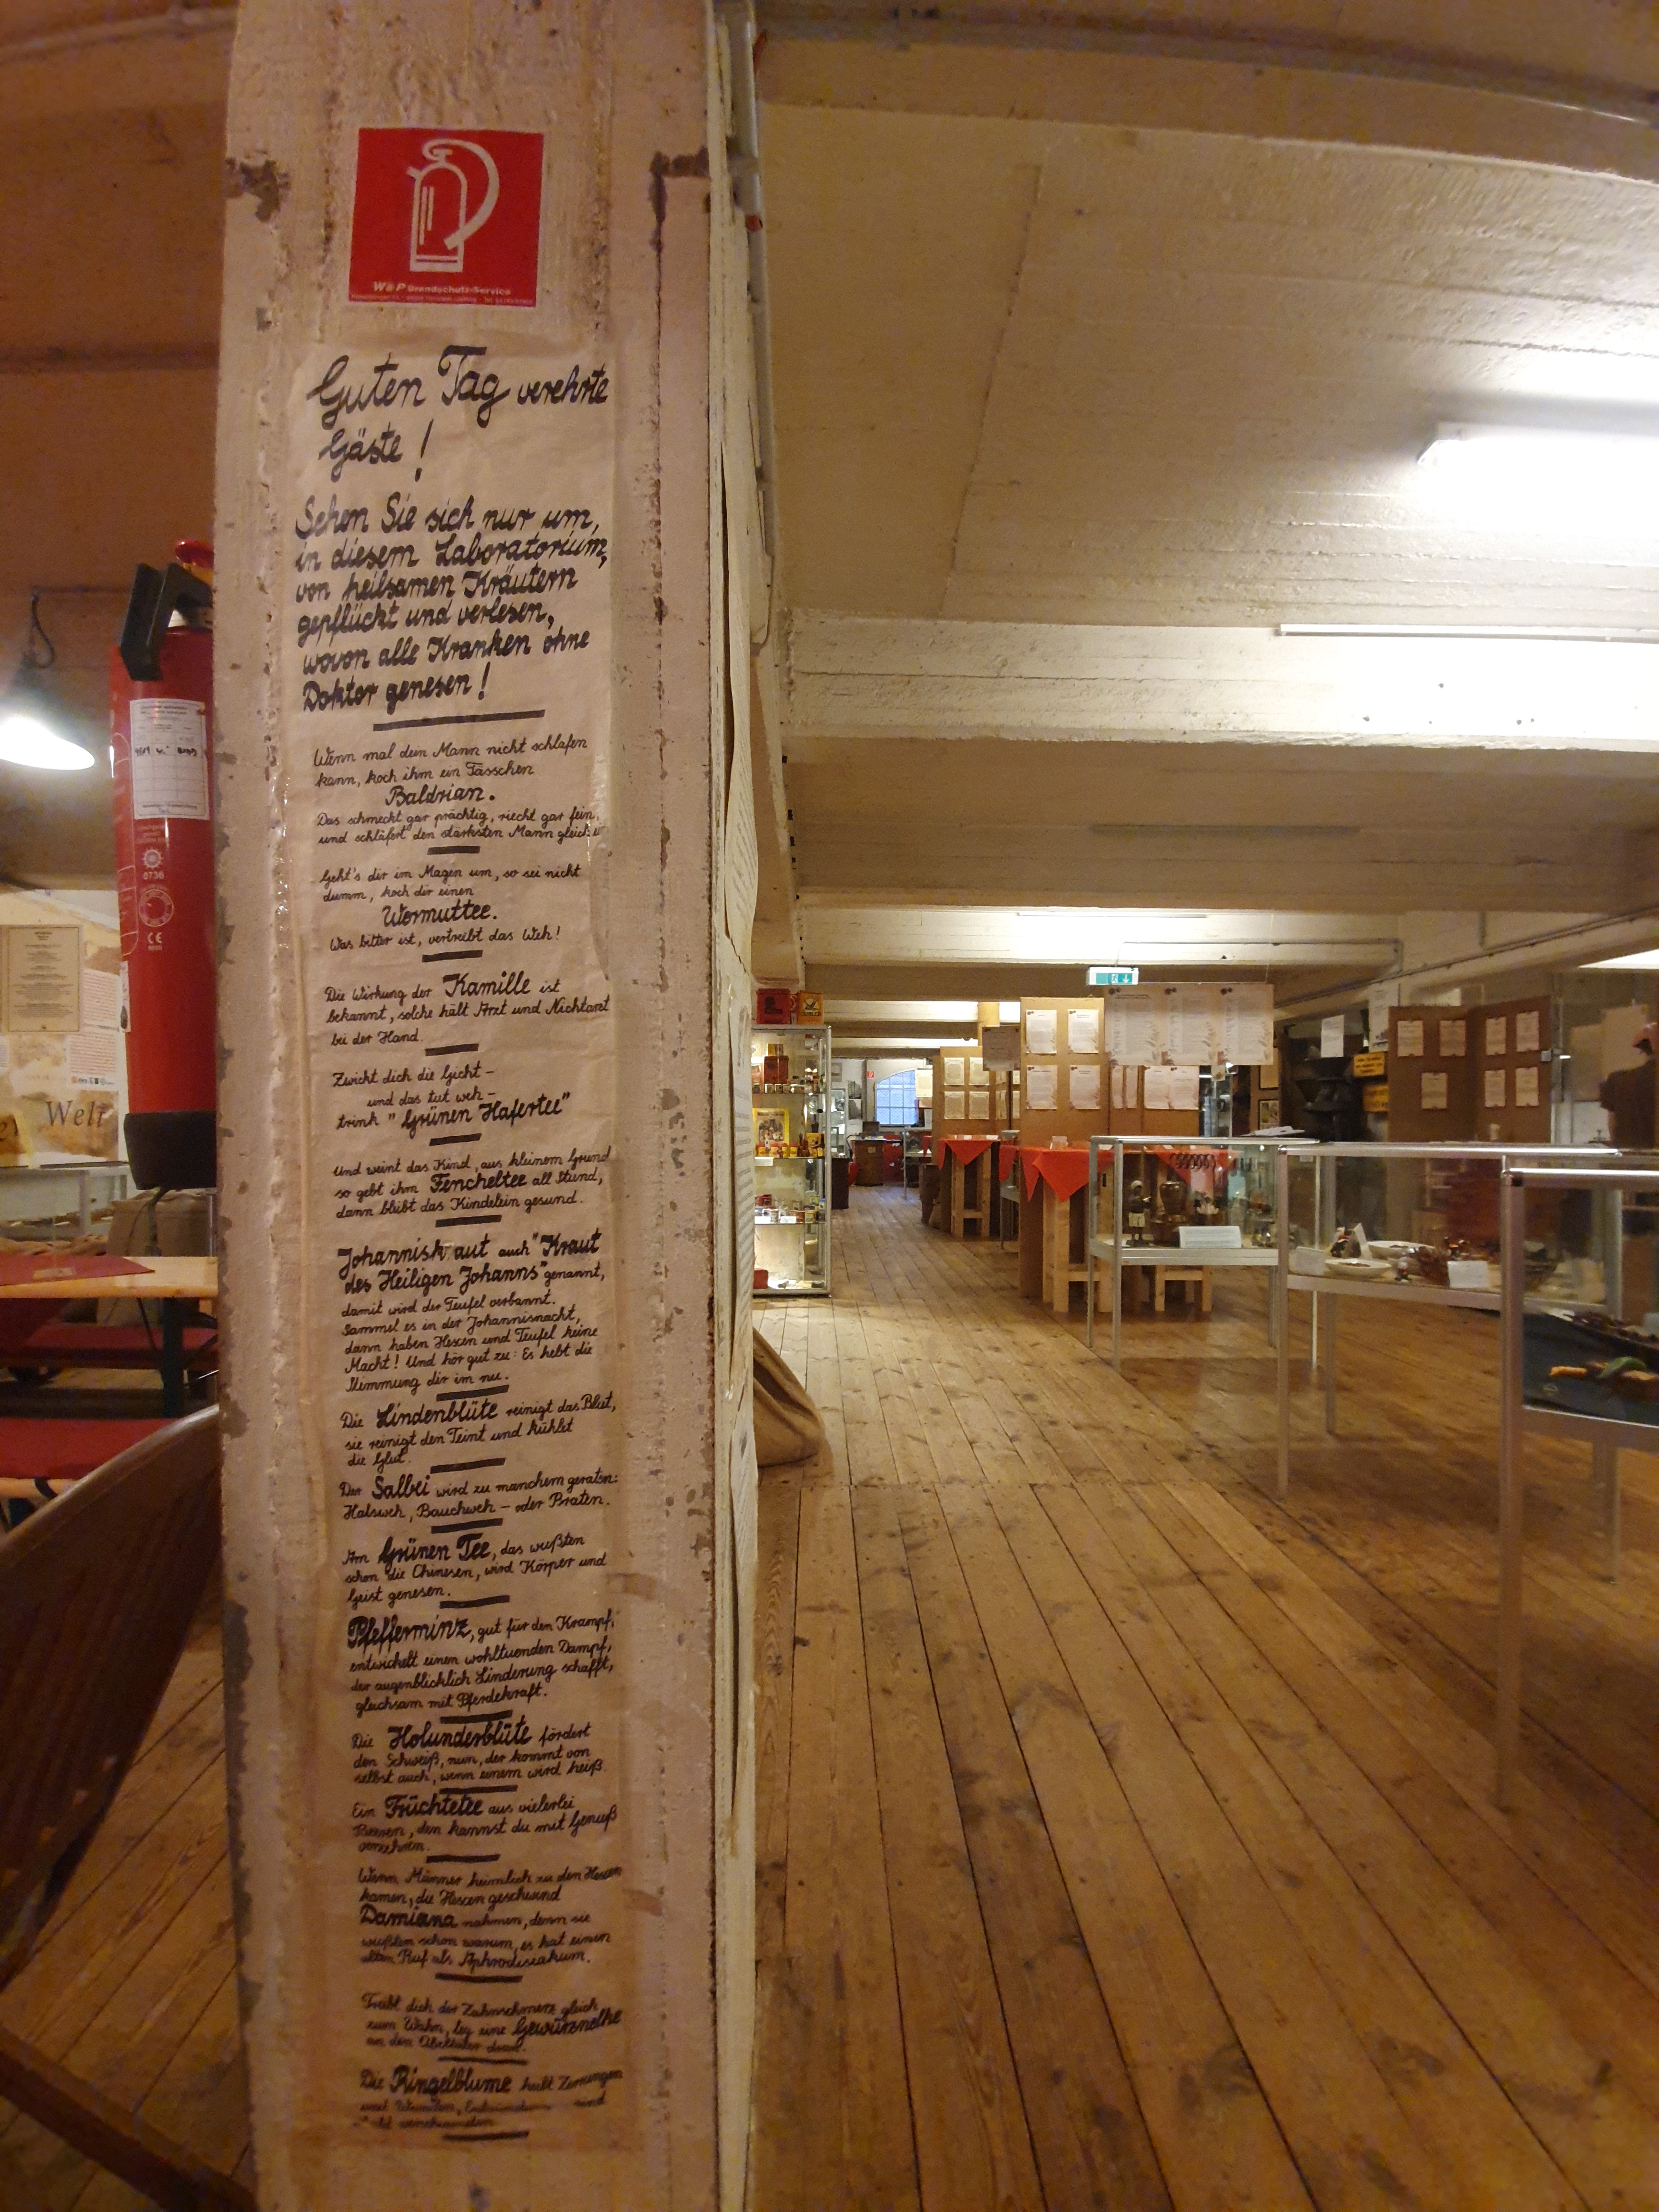 W&P Brandschutz-Service
Guten Tag verehrte
Gäste!
Sehen Sie sich nur um,
in diesem Laboratorium,
von heilsamen Kräutern
gepflückt und verlesen,
wovon alle Kranken ohne
Doktor genesen!
Wenn mal dein Mann nicht schlafen
kann, koch ihm ein Tässchen
Baldrian.
Das schmeckt gar prächtig, riecht gar fein,
und schläfert den stärksten Mann gleich
Geht's dir im Magen um, so sei nicht
dumm, koch dir einen
Wermuttee.
Was bitter ist, vertreibt das Weh!
Die Wirkung der Kamille ist
bekannt, solche hält Arzt und Nichtarzt
bei der Hand.
Zwickt dich die Gicht -
und das tut weh -
trink "Grünen Hafertee"
Und weint das Kind, aus kleinem Grund
so gebt ihm Fencheltee all Stund,
dann bleibt das Kindelein gesund.
Johanniskraut auch "Kraut
des Heiligen Johanns" genannt,
damit wird der Teufel verbannt.
Sammel es in der Johannisnacht,
dann haben Hexen und Teufel keine
Macht! Und hör gut zu: Es hebt die
Stimmung dir im nu.
Die Lindenblüte reinigt das Blut,
sie reinigt den Teint und kühlet
die Glut.
Der Salbei wird zu manchem geraten:
Halsweh, Bauchweh - oder Braten.
Am Grünen Tee, das wußten
schon die Chinesen, wird Körper und
Geist genesen.
Pfefferminz, gut für den Krampf,
entwickelt einen wohltuenden Dampf,
der augenblicklich Linderung schafft,
gleichsam mit Pferdekraft.
Die Holunderblüte fördert
den Schweiß, nun, der kommt von
selbst auch, wenn einem wird heiß.
Ein Früchtetee aus vielerlei
Beeren, den kannst du mit Genuß
verzehren.
Wenn Männer heimlich zu den Hexen
kamen, die Hexen geschwind
Damiana nahmen, denn sie
wußten schon warum, es hat einen
alten Ruf als Aphrodisiakum.
Treibt dich der Zahnschmerz gleich
zum Wahn, leg eine Gewürznelke
an den Übeltäter dran.
Die Ringelblume heilt Zerrungen
und sind
0736
CE
Welt